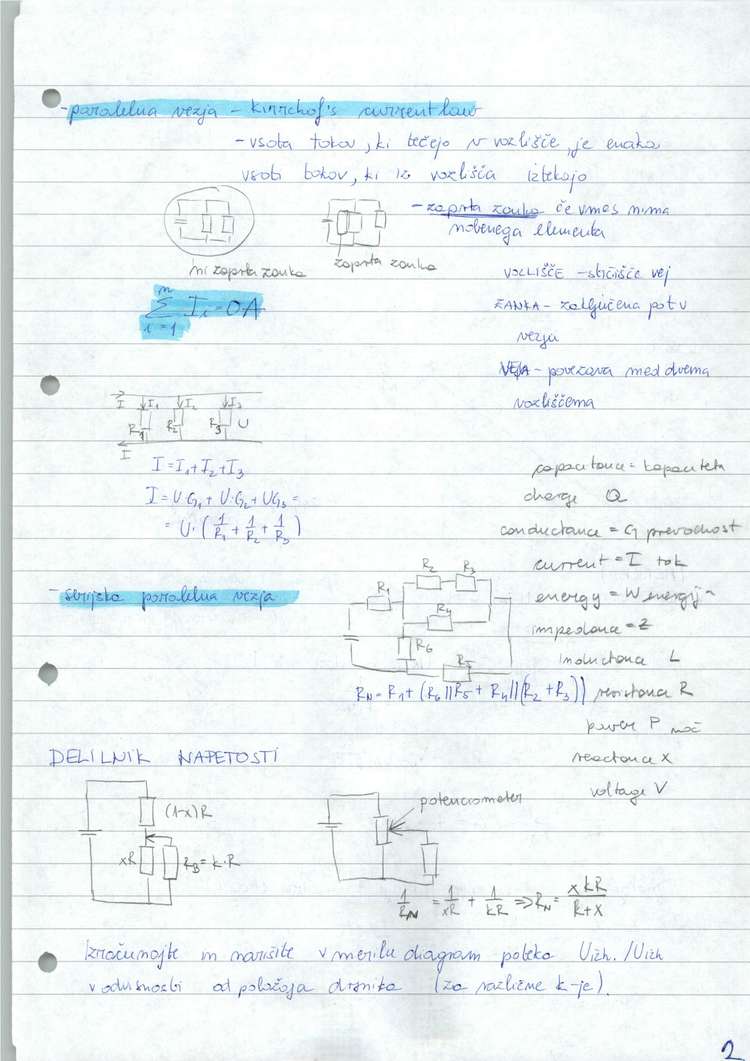 - paralelna vezja - kirrchof's current law
- vsota tokov, ki tečejo v vozlišče, je enaka
vsoti tokov, ki iz vozlišča iztekajo
- zaprta zanka če vmes nima
nobenega elementa
ni zaprta zanka
zaprta zanka
VOZLIŠČE - stičišče vej
ZANKA - zaključena pot v
vezju
VEJA - povezava med dvema
vozliščema
n
∑ Iᵢ = 0A
i = 1
I I₁ I₂ I₃
R₁ R₂ R₃ U
I
I = I₁ + I₂ + I₃
I = U·G₁ + U·G₂ + UG₃ =
= U·(1/R₁ + 1/R₂ + 1/R₃)
capacitance = kapaciteta
charge Q
conductance = G prevodnost
current = I tok
energy = W energija
impedance = Z
inductance L
resistance R
power P moč
reactance X
voltage V
- serijsko paralelna vezja
R₁ R₂ R₃
R₄
R₆
R₅
R_N = R₁ + (R₆||R₅ + R₄||(R₂ + R₃))
DELILNIK NAPETOSTI
(1-x)R
xR
R_B = k·R
potenciometer
1/R_N = 1/xR + 1/kR ⇒ R_N = xkR/k+x
Izračunajte in narišite v merilu diagram poteka Uizh./Uizh
v odvisnosti od položaja drsnika (za različne k-je).
2